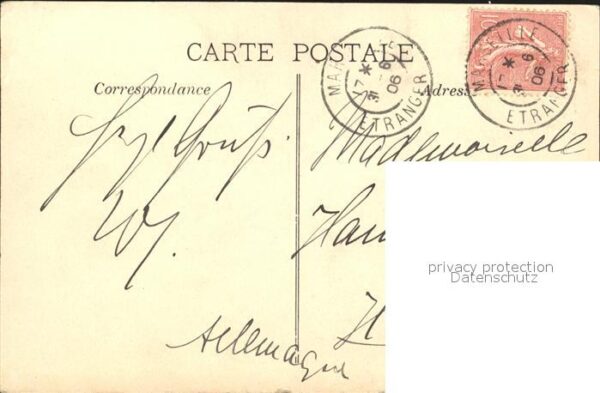 CARTE POSTALE
Correspondance
Adres
MARSEILLE
17 * 6
06
ETRANGER
MARSEILLE
17 * 6
06
ETRANGER
10
Mademoiselle
Han
H
Allemagne
privacy protection
Datenschutz